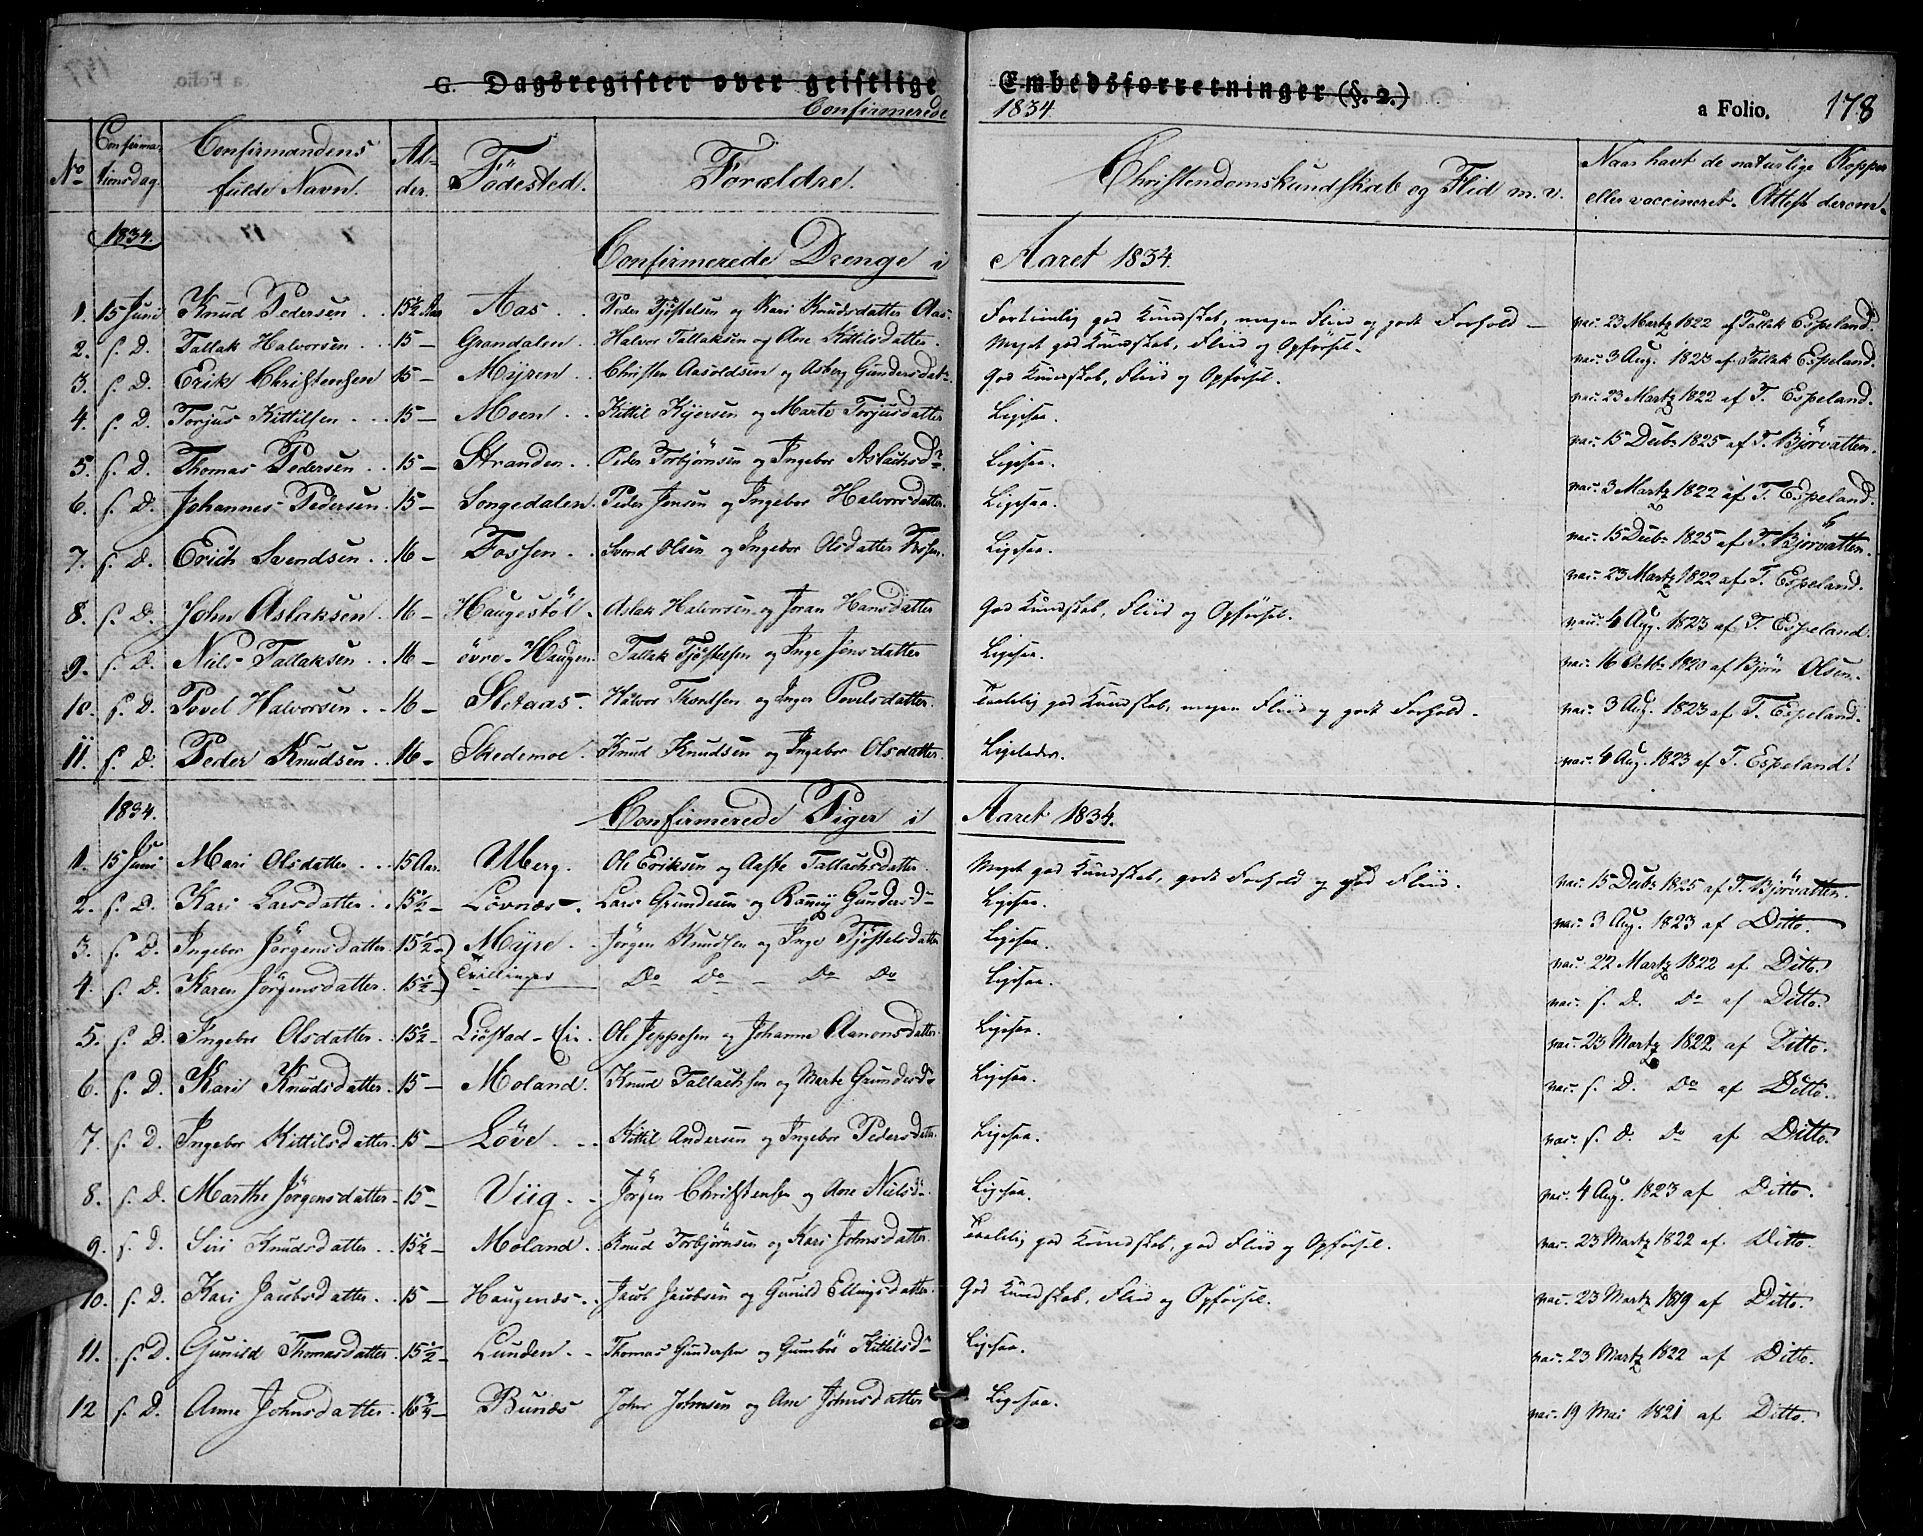 C. Dagsregister over geistlige Embedsforretninger (§. 2.)
Confirmerede 1834. a Folio. 178
No Confirmationsdag. Confirmandens fulde Navn. Alder. Födested. Forældre. Christendomskundskab og Flid m. v. Naar havt de naturlige Kopper eller vaccineret. Attest derom.
1834. Confirmerede Drenge i Aaret 1834.
1. 15 Juni Knud Pedersen 15½ Aar Aas. Peder Tjöstelsen og Kari Knudsdatter Aas. god Kundskab, megen Fliid og godt Forhold vac. 23 Martz 1822 af Tallak Espeland.
2. s. D. Tallak Halvorsen 15 Grandalen. Halvor Tallaksen og Ane Kittilsdatter. Meget god Kundskab, Fliid og Opförsel. vac. 3 Aug. 1823 af Tallak Espeland.
3. s. D. Erik Christensen 15 Myren. Christen Aasoldsen og Asberg Gundersdat. God Kundskab, Fliid og Opförsel. vac. 23 Martz 1822 af T. Espeland.
4. s. D. Torjus Kittilsen 15 Moen. Kittil Kjersen og Marte Torjusdatter Ligesaa. vac. 15 Decbr 1825 af T. Bjorvatten.
5. s. D. Thomas Pedersen 15 Stranden. Peder Torbjörnsen og Ingebor Aslachsdr. Ligesaa. vac. 3 Martz 1822 af T. Espeland.
6. s. D. Johannes Pedersen. 15 Songedalen. Peder Jensen og Ingebor Halvorsdatter. Ligesaa. vac. 15 Decbr 1825 af T. Bjorvatten.
7. s. D. Erich Svendsen 16 Fossen. Svend Olsen og Ingebor Olsdatter Fossen. Ligesaa. vac. 23 Martz 1822 af T. Espeland.
8. s. D. John Aslaksen. 16 Haugestöl. Aslak Halvorsen og Joran Hansdatter God Kundskab, Fliid og Opförsel. vac. 4 Aug. 1823 af T. Espeland.
9. s. D. Niels Tallaksen 16 övre Haugen. Tallak Tjöstelsen og Inge Jensdatter Ligesaa. vac. 16 Octbr 1820 af Björn Olsen.
10. s. D. Povel Halvorsen 16 Sletaas. Halvor og Inger Povelsdatter. Taalelig god Kundskab, megen Fliid og godt Forhold. vac. 3 Aug. 1823 af T. Espeland.
11. s. D. Peder Knudsen 16 Skedemoe. Knud Knudsen og Ingebor Olsdatter. Ligeledes. vac. 4 Aug. 1823 af T. Espeland.
1834. Confirmerede Piger i Aaret 1834.
1. 15 Juni Mari Olsdatter 15 Aar. Uberg. Ole Eriksen og Aaste Tallachsdatter. Meget god Kundskab, godt Forhold og god Fliid. vac. 15 Decbr 1825 af T. Bjorvatten.
2. s. D. Kari Larsdatter 15½ Lövnæs. Lars Gundersen og Rannej Gundersd. Ligesaa. vac. 3 Aug. 1823 af Ditto.
3. s. D. Ingebor Jörgensdatter 15½ Myre. Jörgen Knudsen og Inge Tjöstelsdatter Ligesaa. vac. 22 Martz 1822 af Ditto.
4. s. D. Karen Jörgensdatter. 15½ Tvillinger Do Do Do Do Ligesaa. vac. s. D. Do af Ditto.
5. s. D. Ingebor Olsdatter. 15½ Ole Jeppesen og Johanne Aanonsdatter Ligesaa. vac. 23 Martz 1822 af Ditto.
6. s. D. Kari Knudsdatter. 15 Moland. Knud Tallachsen og Marte Gundersd. Ligesaa. vac. s. D. Do af Ditto.
7. s. D. Ingebor Kittilsdatter. 15 Löve. Kittil Andersen og Ingebor Pedersdatter. Ligesaa. vac. s. D. Do af Ditto.
8. s. D. Marthe Jörgensdatter. 15 Viig. Jörgen Christensen og Ane Nielsd. Ligesaa. vac. 4 Aug. 1823 af Ditto.
9. s. D. Siri Knudsdatter. 15½ Moland. Knud Torbjörnsen og Kari Johnsdatter. Taalelig god Kundskab, god Fliid og Opförsel. vac. 23 Martz 1822 af Ditto.
10. s. D. Kari Jacobsdatter. 15 Haugenæs. Jacob Jacobsen og Gunild Ellingsdatter. God Kundskab, Fliid og Opförsel. vac. 23 Martz 1819 af Ditto.
11. s. D. Gunild Thomasdatter 15½ Lunden. Thomas Gundersen og Gunbör Kittilsd. Ligesaa. vac. 23 Martz 1822 af Ditto.
12 s. D. Anne Johnsdatter. 16¾ Bunæs John Johnsen og Ane Johnsdatter Ligesaa. vac. 19 Mai 1821 af Ditto.